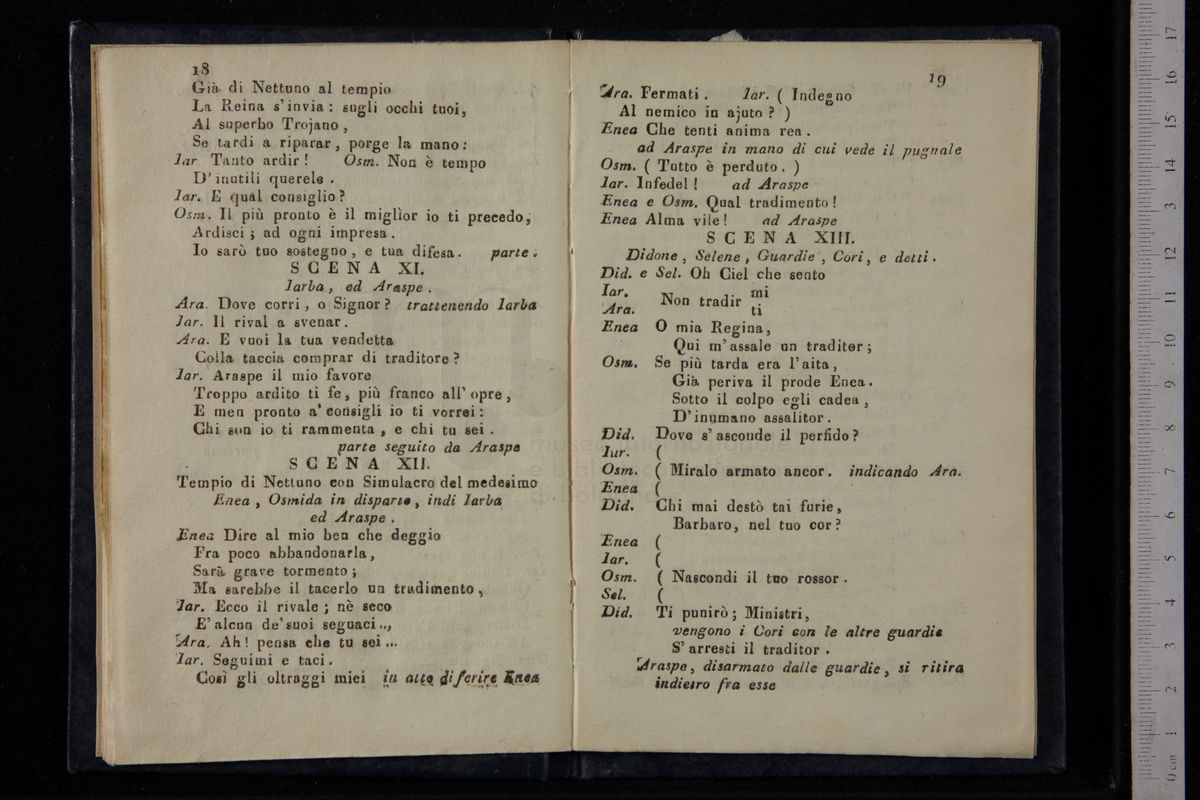 18
Già di Nettuno al tempio
La Reina s'invia: sugli occhi tuoi,
Al superbo Trojano,
Se tardi a riparar, porge la mano:
Iar Tanto ardir! Osm. Non è tempo
D'inutili querele.
Iar. E qual consiglio?
Osm. Il più pronto è il miglior io ti precedo,
Ardisci; ad ogni impresa.
Io sarò tuo sostegno, e tua difesa. parte.
SCENA XI.
Iarba, ed Araspe.
Ara. Dove corri, o Signor? trattenendo Iarba
Iar. Il rival a svenar.
Ara. E vuoi la tua vendetta
Colla taccia comprar di traditore?
Iar. Araspe il mio favore
Troppo ardito ti fe, più franco all'opre,
E men pronto a' consigli io ti vorrei:
Chi son io ti rammenta, e chi tu sei.
parte seguito da Araspe
SCENA XII.
Tempio di Nettuno con Simulacro del medesimo
Enea, Osmida in disparte, indi Iarba
ed Araspe.
Enea Dire al mio ben che deggio
Fra poco abbandonarla,
Sarà grave tormento;
Ma sarebbe il tacerlo un tradimento,
Iar. Ecco il rivale; nè seco
E' alcun de' suoi seguaci..,
Ara. Ah! pensa che tu sei...
Iar. Seguimi e taci.
Così gli oltraggi miei in atto di ferire Enea
19
Ara. Fermati. Iar. ( Indegno
Al nemico in ajuto? )
Enea Che tenti anima rea.
ad Araspe in mano di cui vede il pugnale
Osm. ( Tutto è perduto. )
Iar. Infedel! ad Araspe
Enea e Osm. Qual tradimento!
Enea Alma vile! ad Araspe
SCENA XIII.
Didone, Selene, Guardie, Cori, e detti.
Did. e Sel. Oh Ciel che sento
Iar. mi
Non tradir
Ara. ti
Enea O mia Regina,
Qui m'assale un traditor;
Osm. Se più tarda era l'aita,
Già periva il prode Enea.
Sotto il colpo egli cadea,
D'inumano assalitor.
Did. Dove s'asconde il perfido?
Iar. (
Osm. ( Miralo armato ancor. indicando Ara.
Enea (
Did. Chi mai destò tai furie,
Barbaro, nel tuo cor?
Enea (
Iar. (
Osm. ( Nascondi il tuo rossor.
Sel. (
Did. Ti punirò; Ministri,
vengono i Cori con le altre guardie
S'arresti il traditor.
Araspe, disarmato dalle guardie, si ritira
indietro fra esse